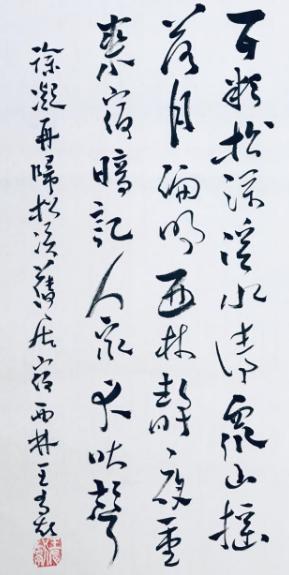 五粒松深溪水清眾山搖
落月偏明西林靜夜重
來宿暗記人家犬吠聲
徐凝再歸松溪舊居宿西林王